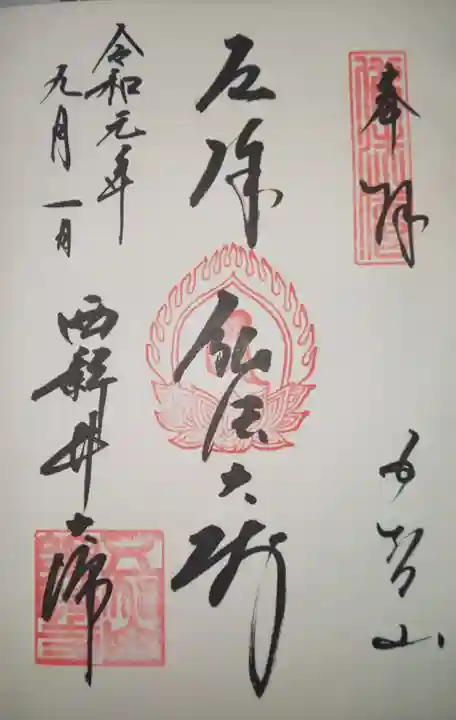 奉拝
五智山
厄除弘法大師
令和元年
九月一日
西新井大師